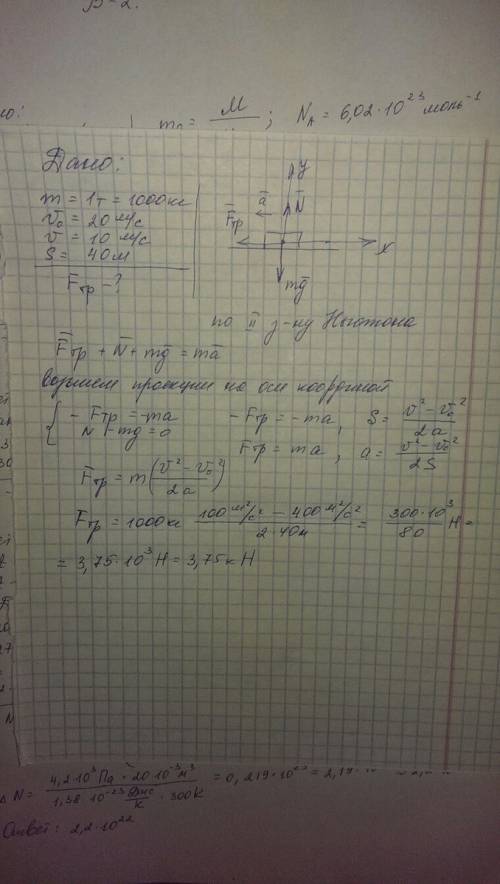 В-2.
m₀ = M ; N_A = 6,02·10²³ моль⁻¹
Дано:
m = 1т = 1000кг
v̄₀ = 20 м/с
v̄ = 10 м/с
S = 40м
F̄тр - ?
y
ā N̄
F̄тр
x
mḡ
по II з-ну Ньютона
F̄тр + N̄ + mḡ = mā
возьмем проекции на оси координат
{ - Fтр = -ma
N - mg = 0
- Fтр = -ma, S = (v̄² - v̄₀²)/2a
Fтр = ma, a = (v̄² - v̄₀²)/2S
F̄тр = m((v̄² - v̄₀²)/2a)
Fтр = 1000кг (100 м²/с² - 400 м²/с²)/(2·40м) = (300·10³)/80 Н =
= 3,75·10³ Н = 3,75 кН
N = (4,2·10³ Па · 20·10⁻³ м³)/(1,38·10⁻²³ Дж/К · 300К) = 0,219·10²³ = 2,19·
Ответ: 2,2·10²²